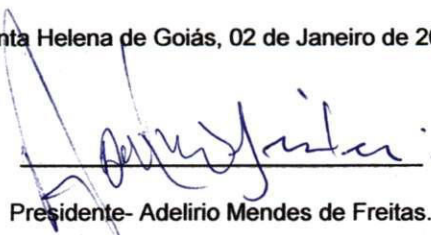 nta Helena de Goiás, 02 de Janeiro de 20
Presidente- Adelirio Mendes de Freitas.